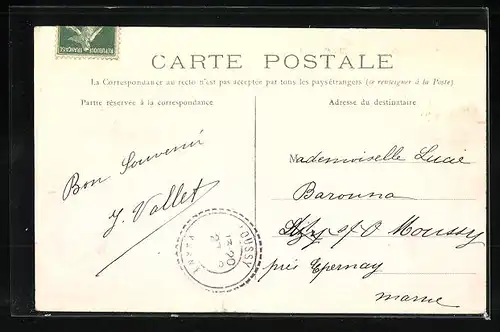 REPUBLIQUE FRANÇAISE
CARTE POSTALE
La Correspondance au recto n'est pas acceptée par tous les pays étrangers (se renseigner à la Poste)
Partie réservée à la correspondance
Adresse du destinataire
Bon Souvenir
J. Vallet
Mademoiselle Lucie
Barouna
s/O Moussy
près Epernay
Marne
MOUSSY